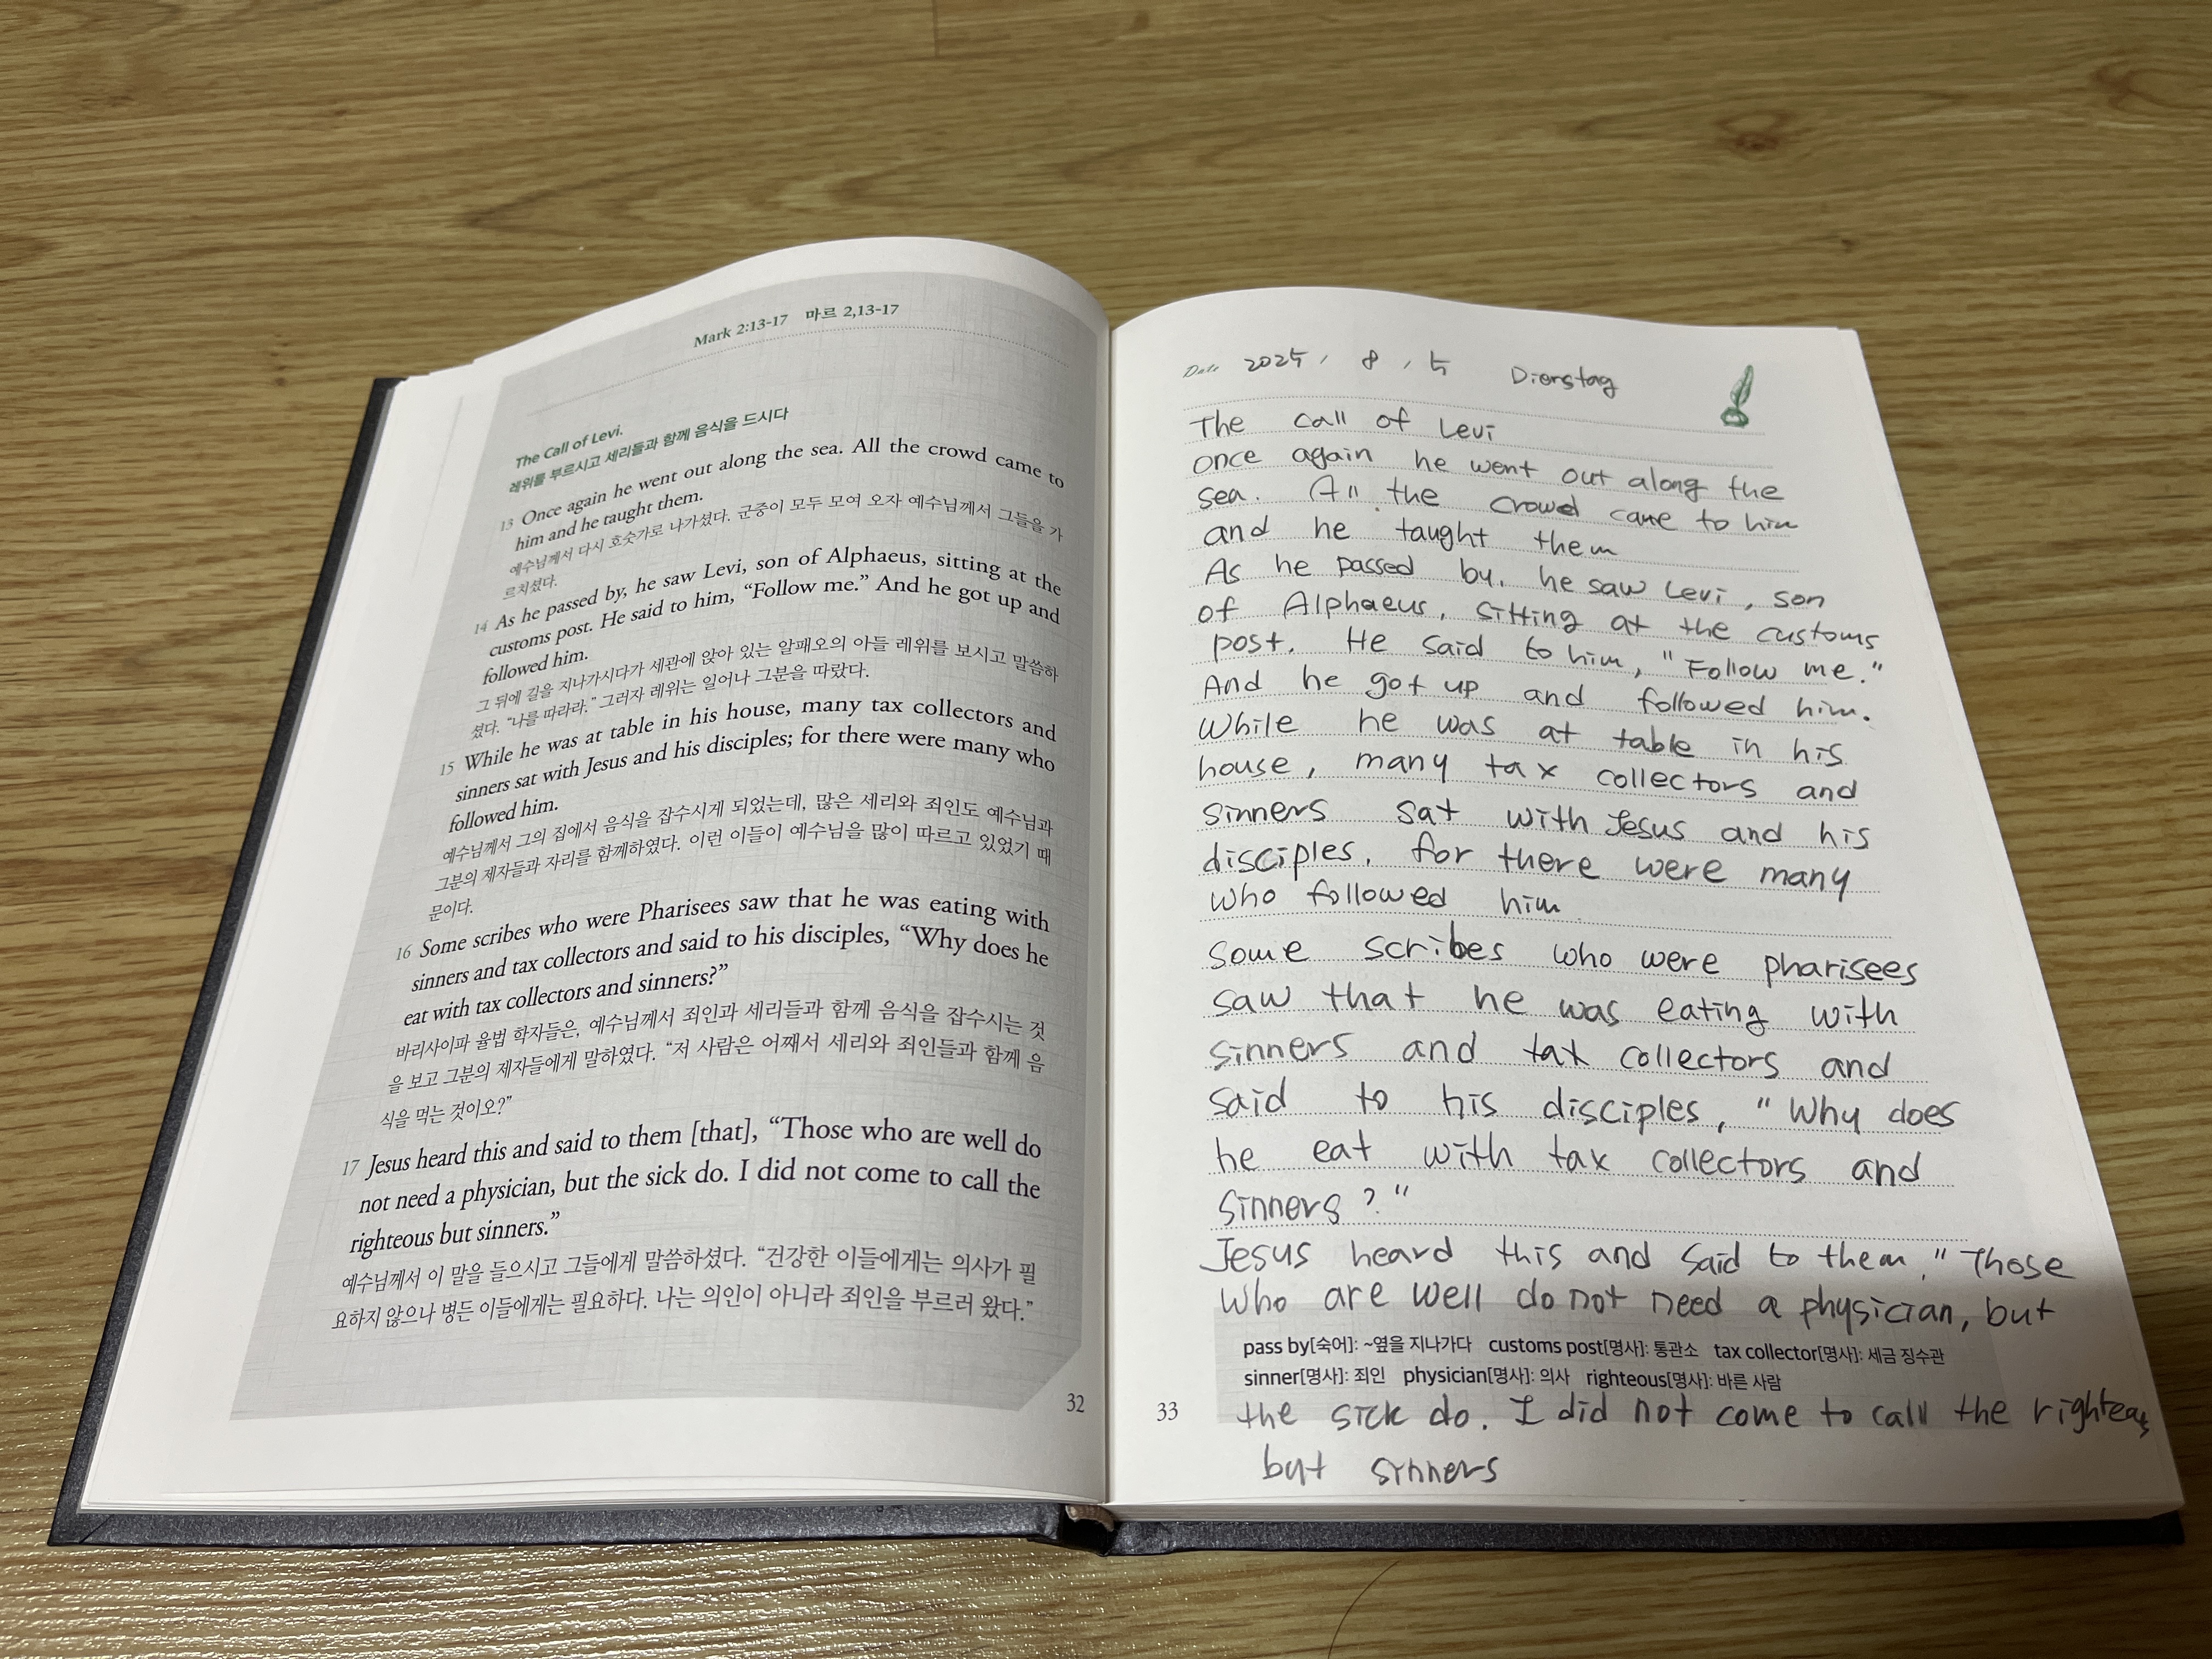 Mark 2:13-17 마르 2,13-17
The Call of Levi.
레위를 부르시고 세리들과 함께 음식을 드시다
13 Once again he went out along the sea. All the crowd came to
him and he taught them.
예수님께서 다시 호숫가로 나가셨다. 군중이 모두 모여 오자 예수님께서 그들을 가
르치셨다.
14 As he passed by, he saw Levi, son of Alphaeus, sitting at the
customs post. He said to him, “Follow me.” And he got up and
followed him.
그 뒤에 길을 지나가시다가 세관에 앉아 있는 알패오의 아들 레위를 보시고 말씀하
셨다. “나를 따라라.” 그러자 레위는 일어나 그분을 따랐다.
15 While he was at table in his house, many tax collectors and
sinners sat with Jesus and his disciples; for there were many who
followed him.
예수님께서 그의 집에서 음식을 잡수시게 되었는데, 많은 세리와 죄인도 예수님과
그분의 제자들과 자리를 함께하였다. 이런 이들이 예수님을 많이 따르고 있었기 때
문이다.
16 Some scribes who were Pharisees saw that he was eating with
sinners and tax collectors and said to his disciples, “Why does he
eat with tax collectors and sinners?”
바리사이파 율법 학자들은, 예수님께서 죄인과 세리들과 함께 음식을 잡수시는 것
을 보고 그분의 제자들에게 말하였다. “저 사람은 어째서 세리와 죄인들과 함께 음
식을 먹는 것이오?”
17 Jesus heard this and said to them [that], “Those who are well do
not need a physician, but the sick do. I did not come to call the
righteous but sinners.”
예수님께서 이 말을 들으시고 그들에게 말씀하셨다. “건강한 이들에게는 의사가 필
요하지 않으나 병든 이들에게는 필요하다. 나는 의인이 아니라 죄인을 부르러 왔다.”
32
Date 2025 / 8 / 5 Dienstag
The call of Levi
once again he went out along the
sea. All the crowd came to him
and he taught them
As he passed by. he saw Levi, son
of Alphaeus, sitting at the customs
post. He said to him, "Follow me."
And he got up and followed him.
While he was at table in his
house, many tax collectors and
sinners sat with Jesus and his
disciples, for there were many
who followed him
some scribes who were pharisees
saw that he was eating with
sinners and tax collectors and
said to his disciples, "Why does
he eat with tax collectors and
sinners?"
Jesus heard this and said to them, "Those
who are well do not need a physician, but
pass by[숙어]: ~옆을 지나가다 customs post[명사]: 통관소 tax collector[명사]: 세금 징수관
sinner[명사]: 죄인 physician[명사]: 의사 righteous[명사]: 바른 사람
33 the sick do. I did not come to call the righteous
but sinners